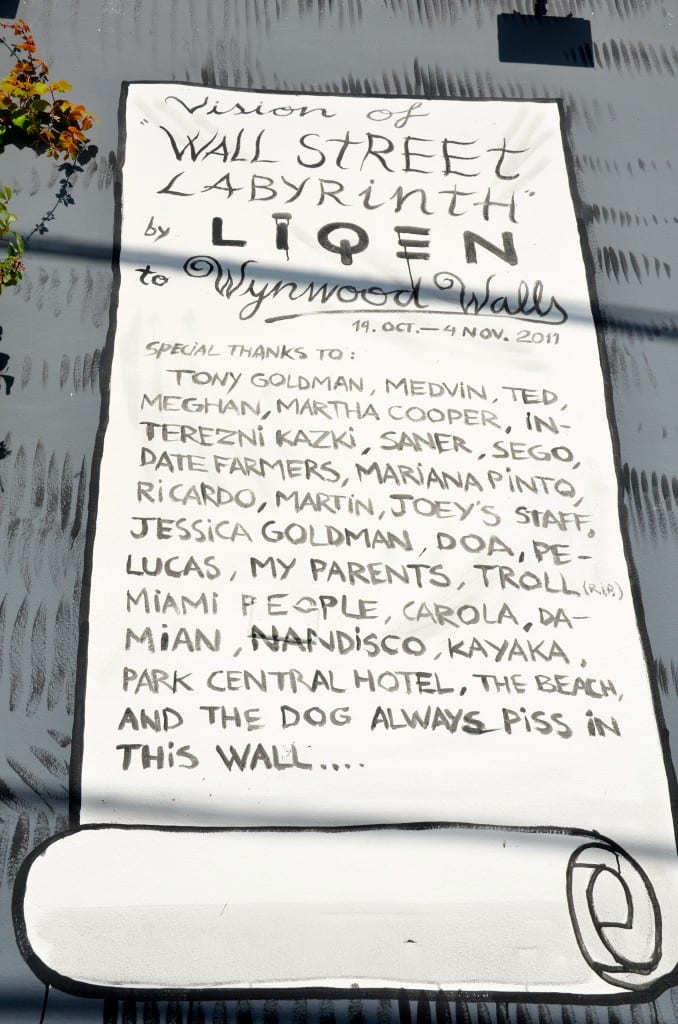 Vision of
"WALL STREET
LABYRINTH"
by LIQEN
to Wynwood Walls
19. OCT.—4 NOV. 2011
SPECIAL THANKS TO:
TONY GOLDMAN, MEDVIN, TED,
MEGHAN, MARTHA COOPER, IN-
TEREZNI KAZKI, SANER, SEGO,
DATE FARMERS, MARIANA PINTO,
RICARDO, MARTIN, JOEY'S STAFF,
JESSICA GOLDMAN, DOA, PE-
LUCAS, MY PARENTS, TROLL (R.I.P.)
MIAMI PEOPLE, CAROLA, DA-
MIAN, NANDISCO, KAYAKA,
PARK CENTRAL HOTEL, THE BEACH,
AND THE DOG ALWAYS PISS IN
THIS WALL....